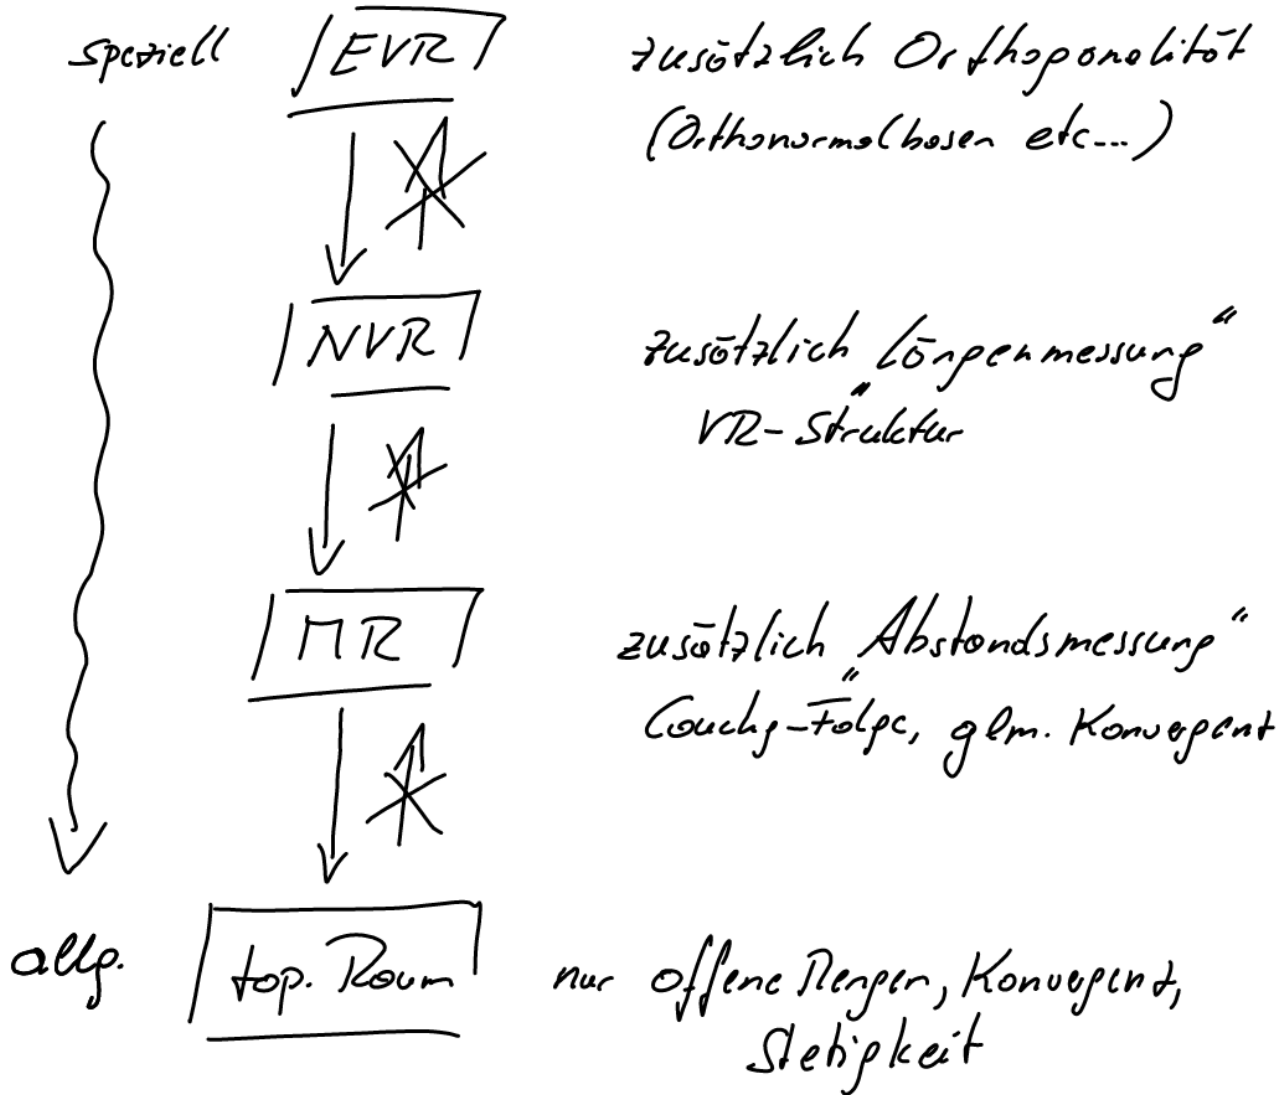 speziell EVR zusätzlich Orthogonalität
(Orthonormalbasen etc...)
NVR zusätzlich „Längenmessung“
VR-Struktur
MR zusätzlich „Abstandsmessung“
Cauchy-Folge, glm. Konvergenz
allg. top. Raum nur offene Mengen, Konvergenz,
Stetigkeit